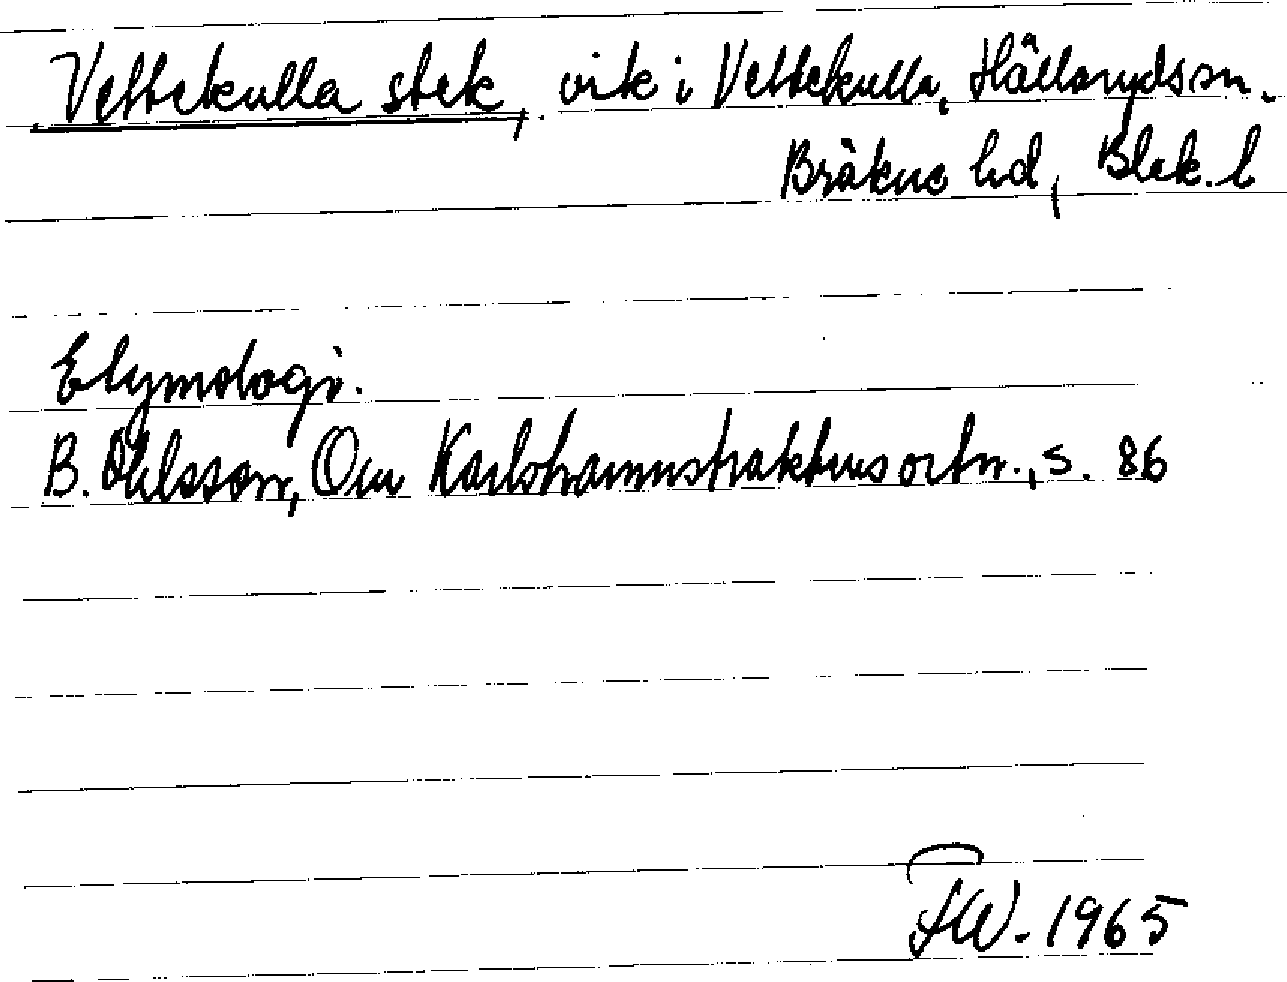 Vettekulla stek, vik i Vettekulla, Hällaryds sn.
Bräkne hd, Blek. l
Etymologi.
B. Ohlsson, Om Karlshamnstraktens ortn., s. 86
FW. 1965